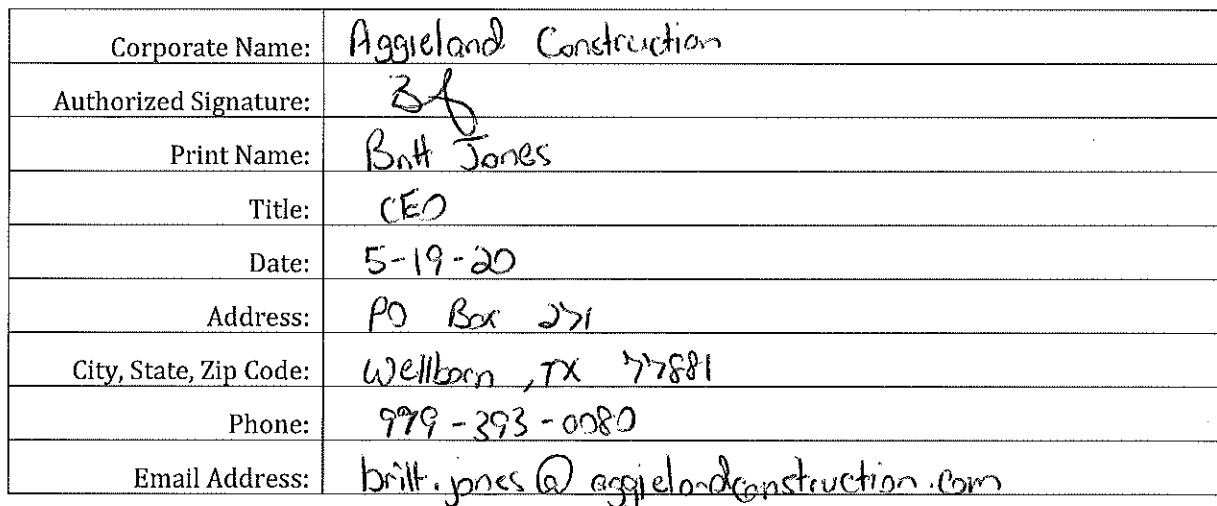 Corporate Name: Aggieland Construction
Authorized Signature:
Print Name: Britt Jones
Title: CEO
Date: 5-19-20
Address: PO Box 271
City, State, Zip Code: Wellborn, TX 77881
Phone: 979-393-0080
Email Address: britt.jones@aggielandconstruction.com